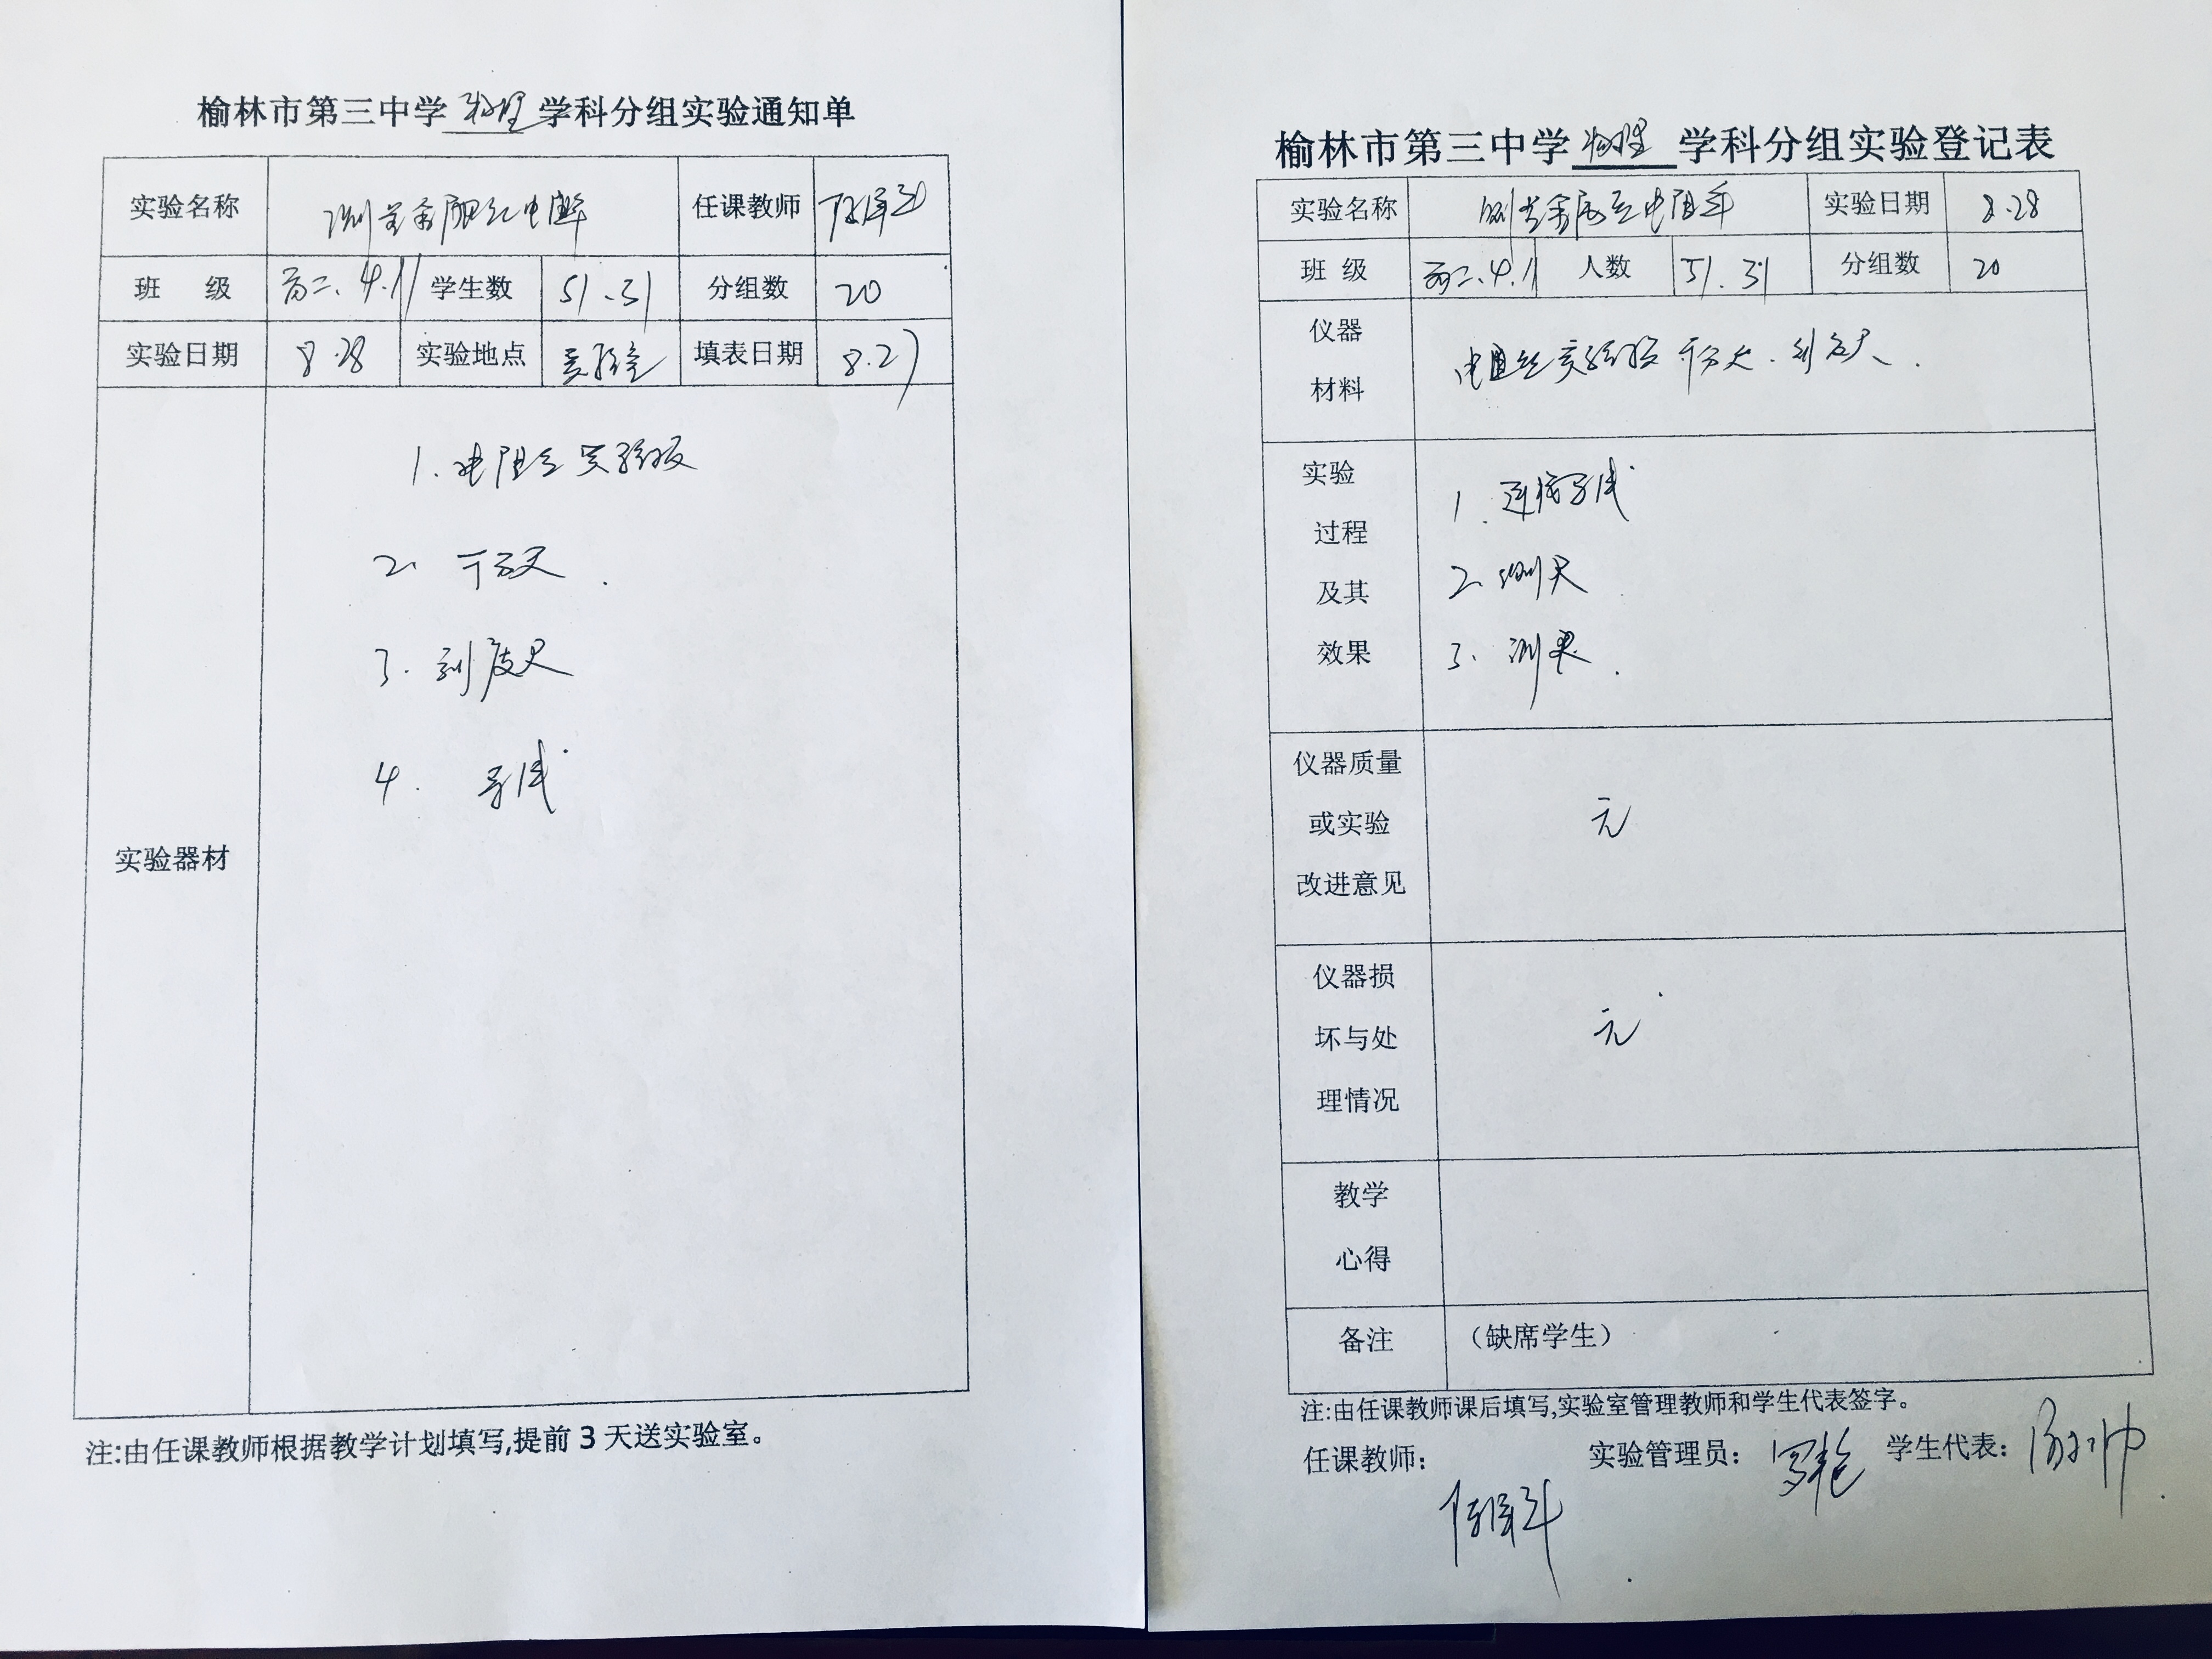 榆林市第三中学物理学科分组实验通知单
实验名称 测量金属丝电阻率 任课教师
班 级 高二、4.11 学生数 51.51 分组数 20
实验日期 8.28 实验地点 实验室 填表日期 8.27
实验器材
1. 电阻丝实验板
2. 千分尺
3. 刻度尺
4. 导线
注:由任课教师根据教学计划填写,提前3天送实验室。
榆林市第三中学物理学科分组实验登记表
实验名称 测量金属丝电阻率 实验日期 8.28
班 级 高二、4.11 人数 51.51 分组数 20
仪器
材料
电阻丝实验板 千分尺、刻度尺、
实验
过程
及其
效果
1. 连接导线
2. 测
3. 测
仪器质量
或实验
改进意见
无
仪器损
坏与处
理情况
无
教学
心得
备注 (缺席学生)
注:由任课教师课后填写,实验室管理教师和学生代表签字。
任课教师: 实验管理员: 学生代表: